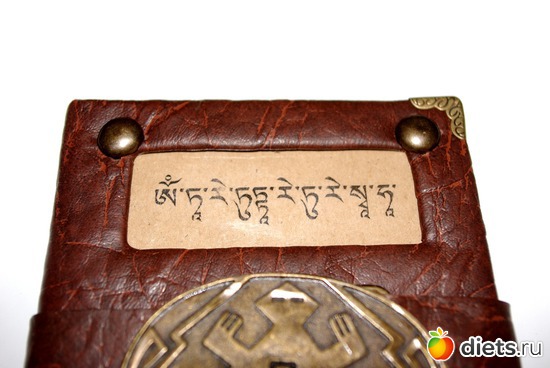 ཨོཾ་ཏཱ་རེ་ཏུཏྟཱ་རེ་ཏུ་རེ་སྭཱ་ཧཱ
diets.ru